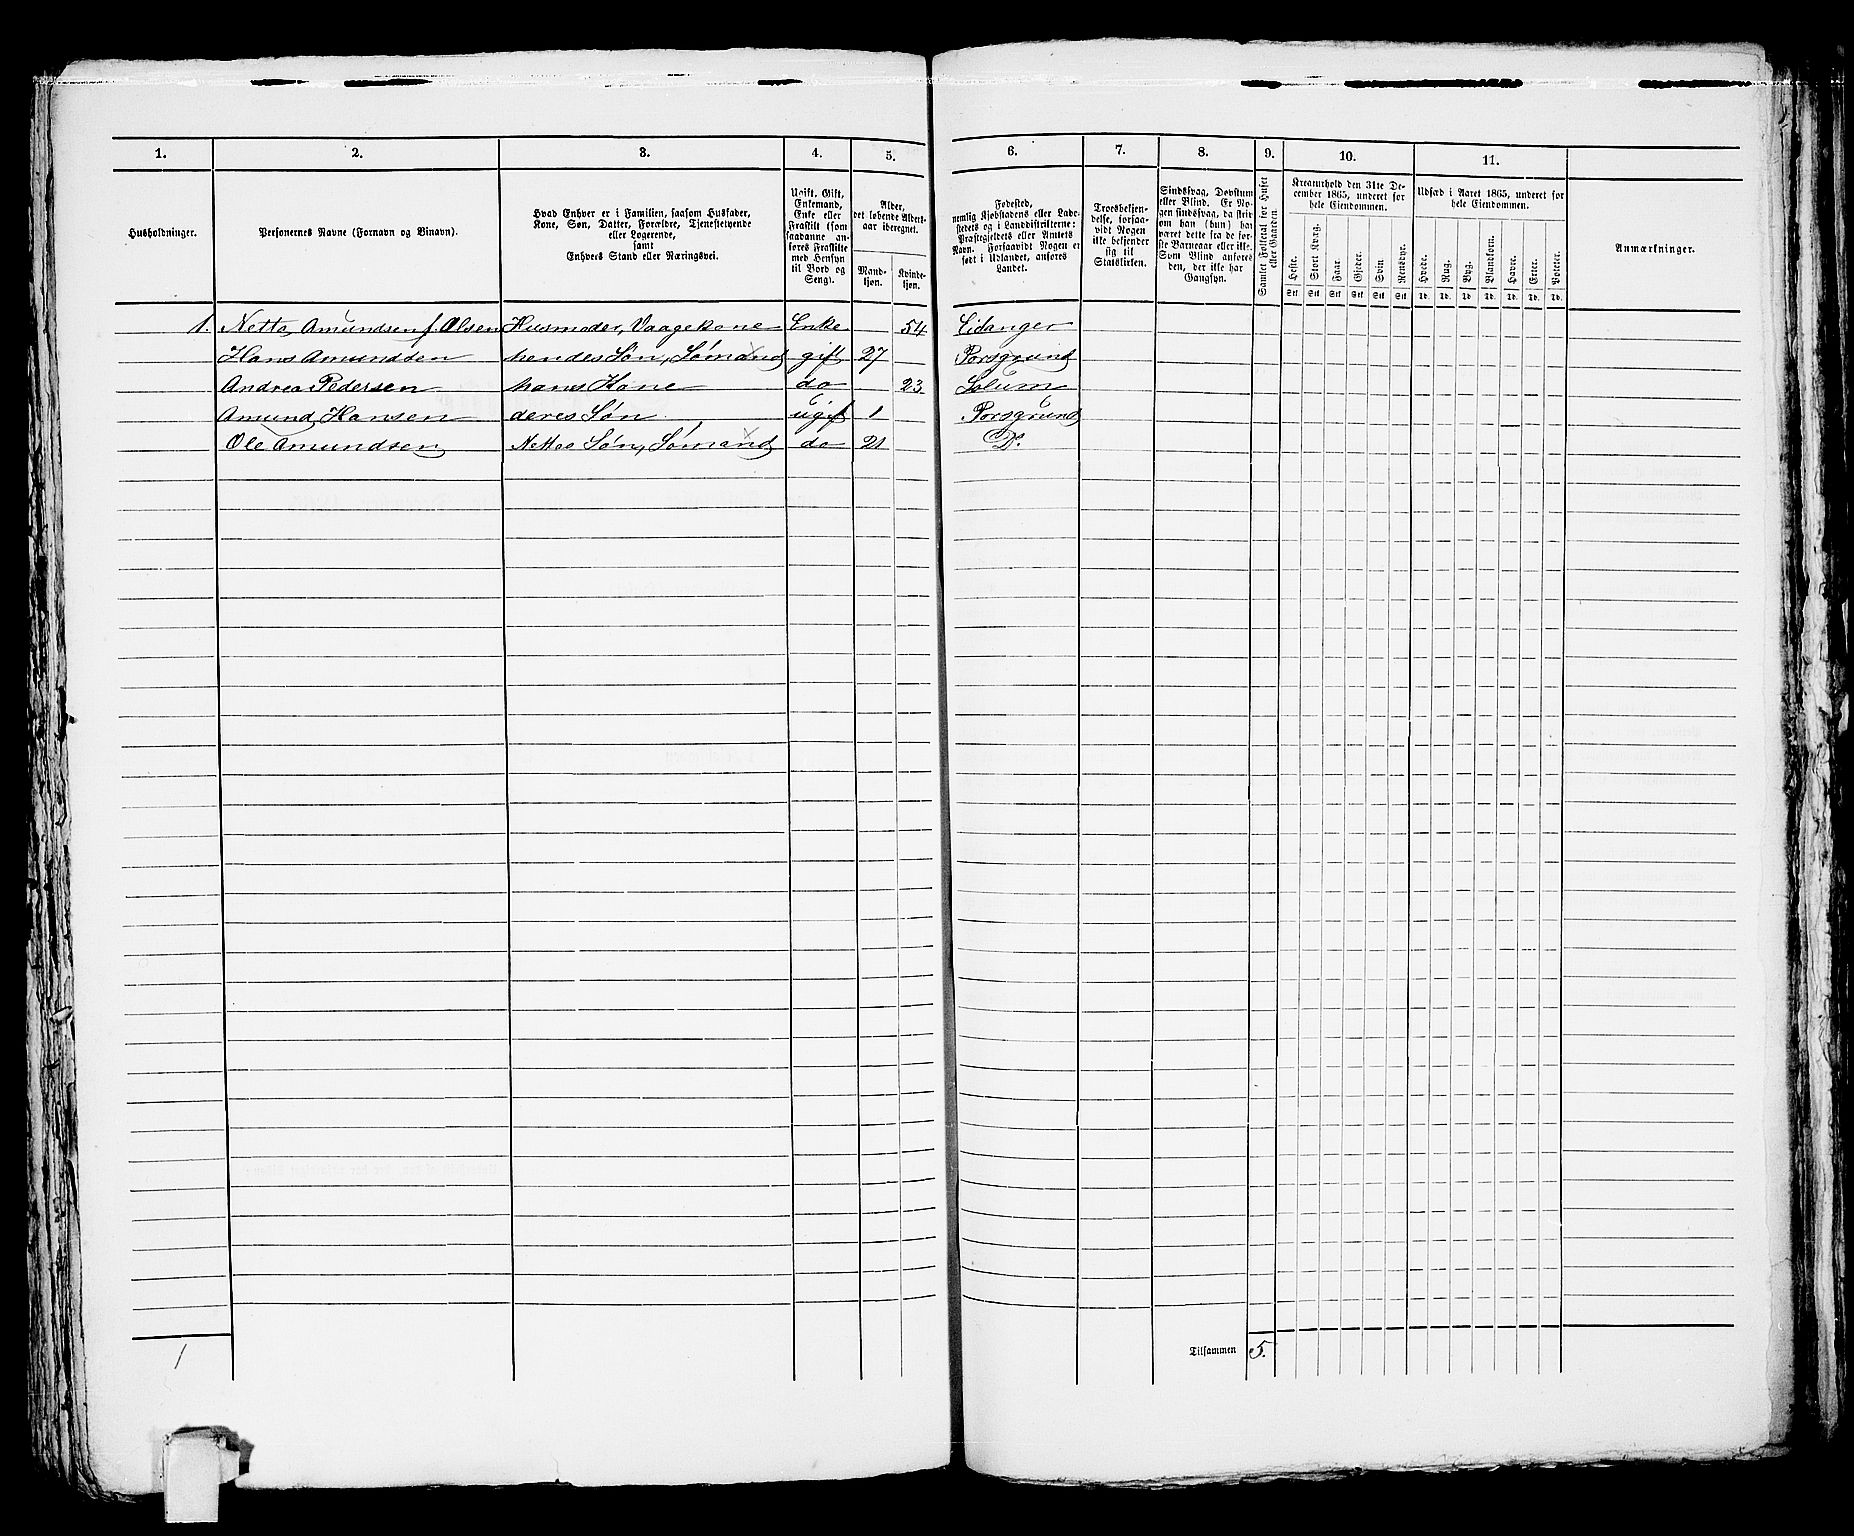 1. 2. 3. 4. 5. 6. 7. 8. 9. 10. 11.
Husholdninger.
Personernes Navne (Fornavn og Tilnavn).
Hvad Enhver er i Familien, saasom Husfader,
Kone, Søn, Datter, Forældre, Tjenestetyende
eller Logerende,
samt
Enhvers Stand eller Næringsvei.
Ugift, Gift,
Enkemand,
Enke eller
Fraskilt (som
saadanne an-
føres Fraskilte
med Hensyn
til Bord og
Seng).
Alder,
det løbende Alders-
aar iberegnet.
Mand-
kjøn.
Kvinde-
kjøn.
Fødested,
nemlig Kjøbstadens eller Lade-
stedets og i Landdistrikterne:
Præstegjeldets eller Amtets
Navn. Forsaavidt Nogen er
født i Udlandet, anføres
Landet.
Troesbekjen-
delse, forsaa-
vidt Nogen
ikke bekjender
sig til
Statskirken.
Sindssvag, Døvstum
eller Blind. Er No-
gen sindssvag, da skri-
ves om han (hun) har
været dette fra de før-
ste Barneaar eller ikke.
Som Blind anføres
den, der ikke har
Gangsyn.
Samlet Folketal for Huset
eller Gaarden.
Kreaturhold den 31te De-
cember 1865, underet for
hele Eiendommen.
Heste. Stort Kvæg. Faar. Gjeder. Svin. Rensdyr.
Stk Stk Stk Stk Stk Stk
Udsæd i Aaret 1865, underet for
hele Eiendommen.
Hvede. Rug. Byg. Blandkorn. Havre. Erter. Poteter.
Td. Td. Td. Td. Td. Td. Td.
Anmærkninger.
1. Netta Amundsen f. Olsen Husmoder, Vaagekone Enke 54 Eidanger
Hans Amundsen hendes Søn, Sømand gift 27 Porsgrund
Andrea Pedersen hans Kone do 23 Solum
Amund Hansen deres Søn ugift 1 Porsgrund
Ole Amundsen Nettas Søn, Sømand do 21 Do.
Tilsammen 5.
1